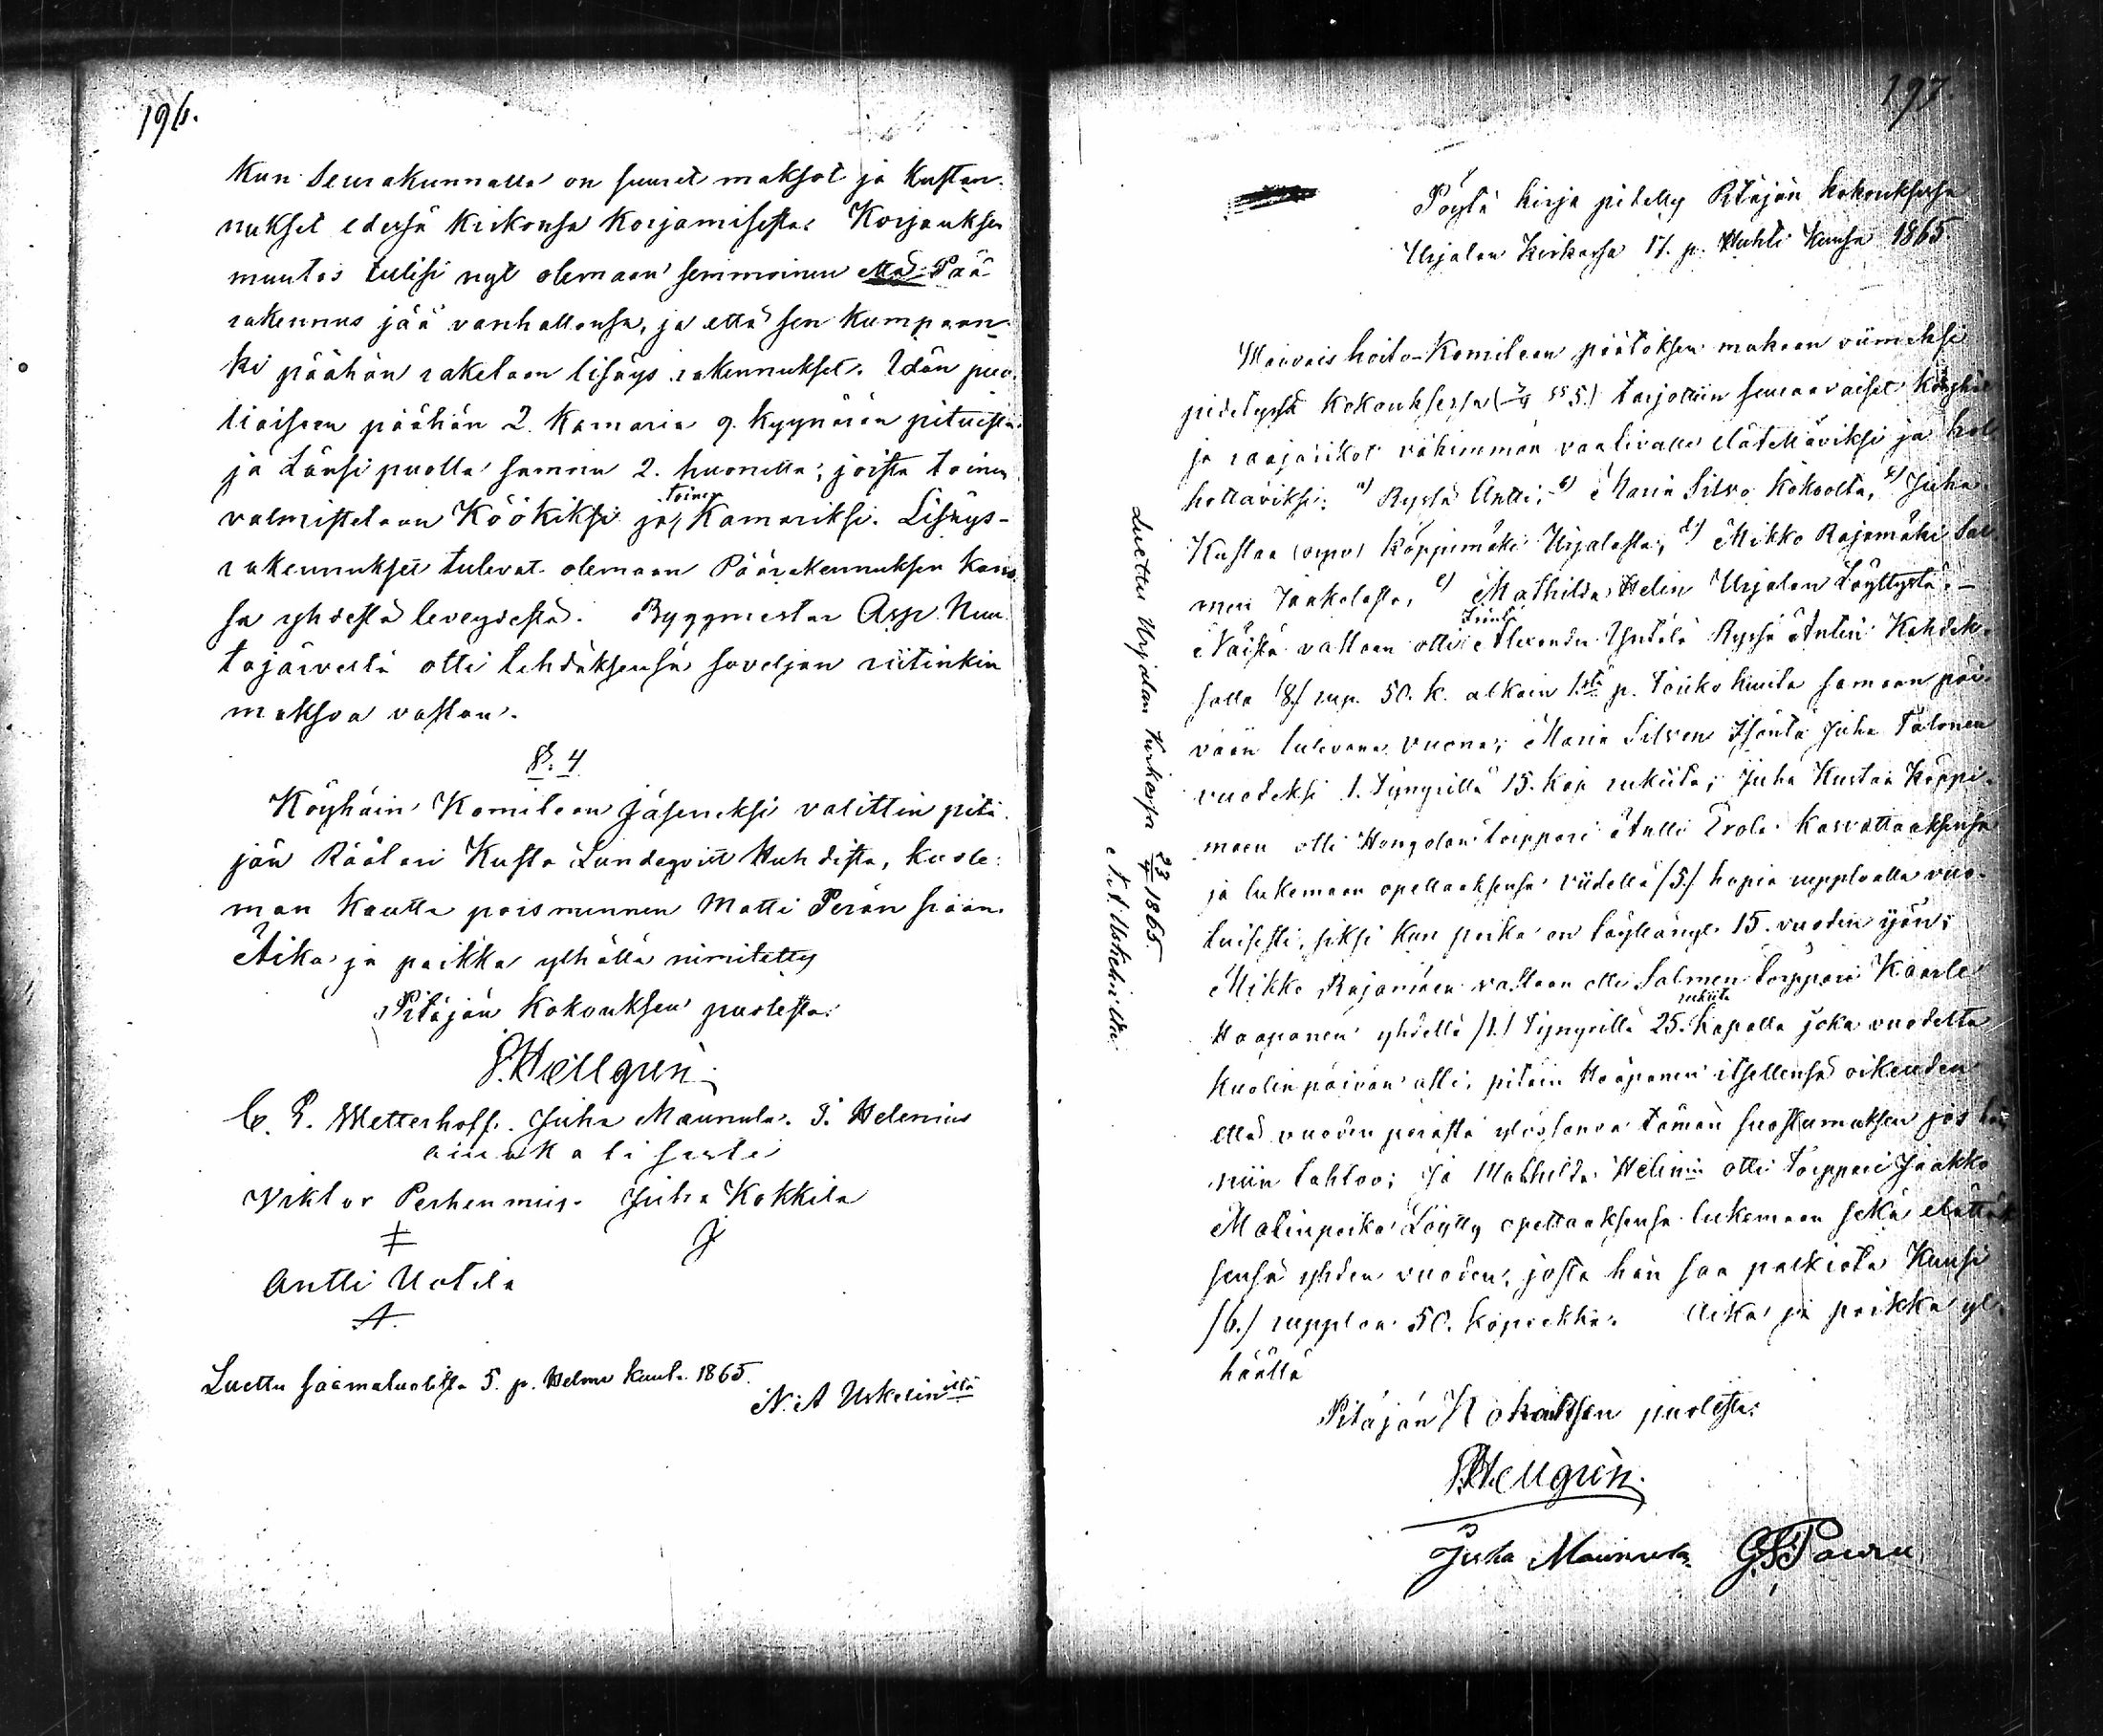 196.
Kun Seurakunnalla on suuret maksot ja Kustan-
nukset edessä Kirkonsa Korjamisesta. Korjauksen
muutos tulisi nyt olemaan semmoinen että Pää
rakennus jää vanhallensa, ja että sen kumpaan-
ki päähän raketaan lisäys rakennukset. Idän puo-
liaiseen päähän 2. Kamaria 9. kyynärän pituista
ja Länsi puolla samoin 2. huonetta; joista toinen
valmistetaanKöökiksi ja toinen Kamariksi. Lisäys-
rakennukset tulevat olemaan Päärakennuksen Kans-
sa yhdestä leveydestä. Byggmestar Asp Nuu-
tajärveltä otti tehdäksensä soveljan riitinkin
maksoa vastan.
§. 4
Köyhäin Komitean Jäseneksi valittin pitä
jän Räätäri Kusta Lundeqvist Huhdista, kuole-
man kautta poismennen Matti Perän siaan.
Aika ja paikka ylhällä nimitetty
Pitäjän Kokouksen puolesta:
Hellgrén
C. E. Wetterhoff. Juha Maunula. J. Helenius
ainakalisesti
Viktor Perhenmies. Juha Kokkila
Antti Uotila
A.
Luettu saamatuolista 5. p. Helme kuula 1865.
N. A Uskelinilta
197.
Pöytä kirja pidetty Pitäjän kokouksessa
Urjalan Kirkossa 17. p. Huhti Kuusa 1865
Waivais hoito-Komitean päätöksen mukaan viimeksi
pidetyssä Kokouksessa (§ 5.) tarjottiin seuraavaiset köyhät
ja raajarikot vähimmän vaativalle elätettäviksi ja hol-
hottaviksi: a) Ryssä Antti, b) Maria Silvo Kokkolta, c) Juha
Kustaa Köppimäki Urjalasta, d) Mikko Rajamäki Sal
men Jaakolasta, e) Mathilda Helin Urjalan Löyttystä. -
Näistä vastaan otti Isäntä Alexander Yntälä Ryssä Antin Kahdek-
salla /8./ rup. 50. k. alkain 1.stä p. Touko kuuta samaan päi-
vään tulevana vuona; Maria Silven Isäntä Juha Talonen
vuodeksi 1. Tynyrillä 15. kap rukiita; Juha Kustaa Köppi-
mäen otti Hongolan torppari Antti Erola kasvattaaksensa
ja lukemaan opettaaksensa viidellä /5./ hopia rupplalla vuo-
tuisesti, siksi kun poika on täyttänyt 15. vuoden ijän;
Mikko Rajamäen vastaan otti Salmen torppari Kaarle
Haaponen yhdellä /1./ Tynyrillä 25. kapalla rukiita joka vuodelta
kuolin päivän asti, pitäin Haaponen itsellensä oikeuden
että vuoden perästä ylössanoa tämän suostumuksen jos hän
niin tahtoo; Ja Mathilda Helinin otti torppari Jaakko
Matinpoika Löytty opettaaksensa lukemaan sekä elättäk
sensä yhden vuoden, josta hän saa palkiota Kuusi
/6./ rupplaa 50. kopeekkaa. Aika ja paikka yl-
häällä
Pitäjän Kokouksen puolesta:
Hellgrén.
Juha Maunula
Luettu Urjalan Kirkossa 23/4 1865.